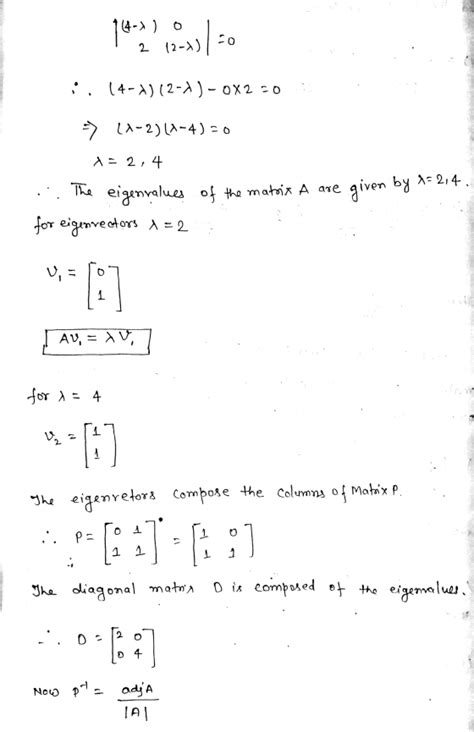 |(4-λ) 0
2 (2-λ)| = 0
∴ (4-λ)(2-λ) - 0×2 = 0
⇒ (λ-2)(λ-4) = 0
λ = 2, 4
∴ The eigenvalues of the matrix A are given by λ=2,4.
for eigenvectors λ = 2
v₁ = [0
1]
Av₁ = λv₁
for λ = 4
v₂ = [1
1]
The eigenvetors compose the columns of Matrix P.
∴ P = [0 1
1 1] = [1 0
1 1]
The diagonal matrix D is composed of the eigenvalues.
∴ D = [2 0
0 4]
Now P⁻¹ = adjA
|A|